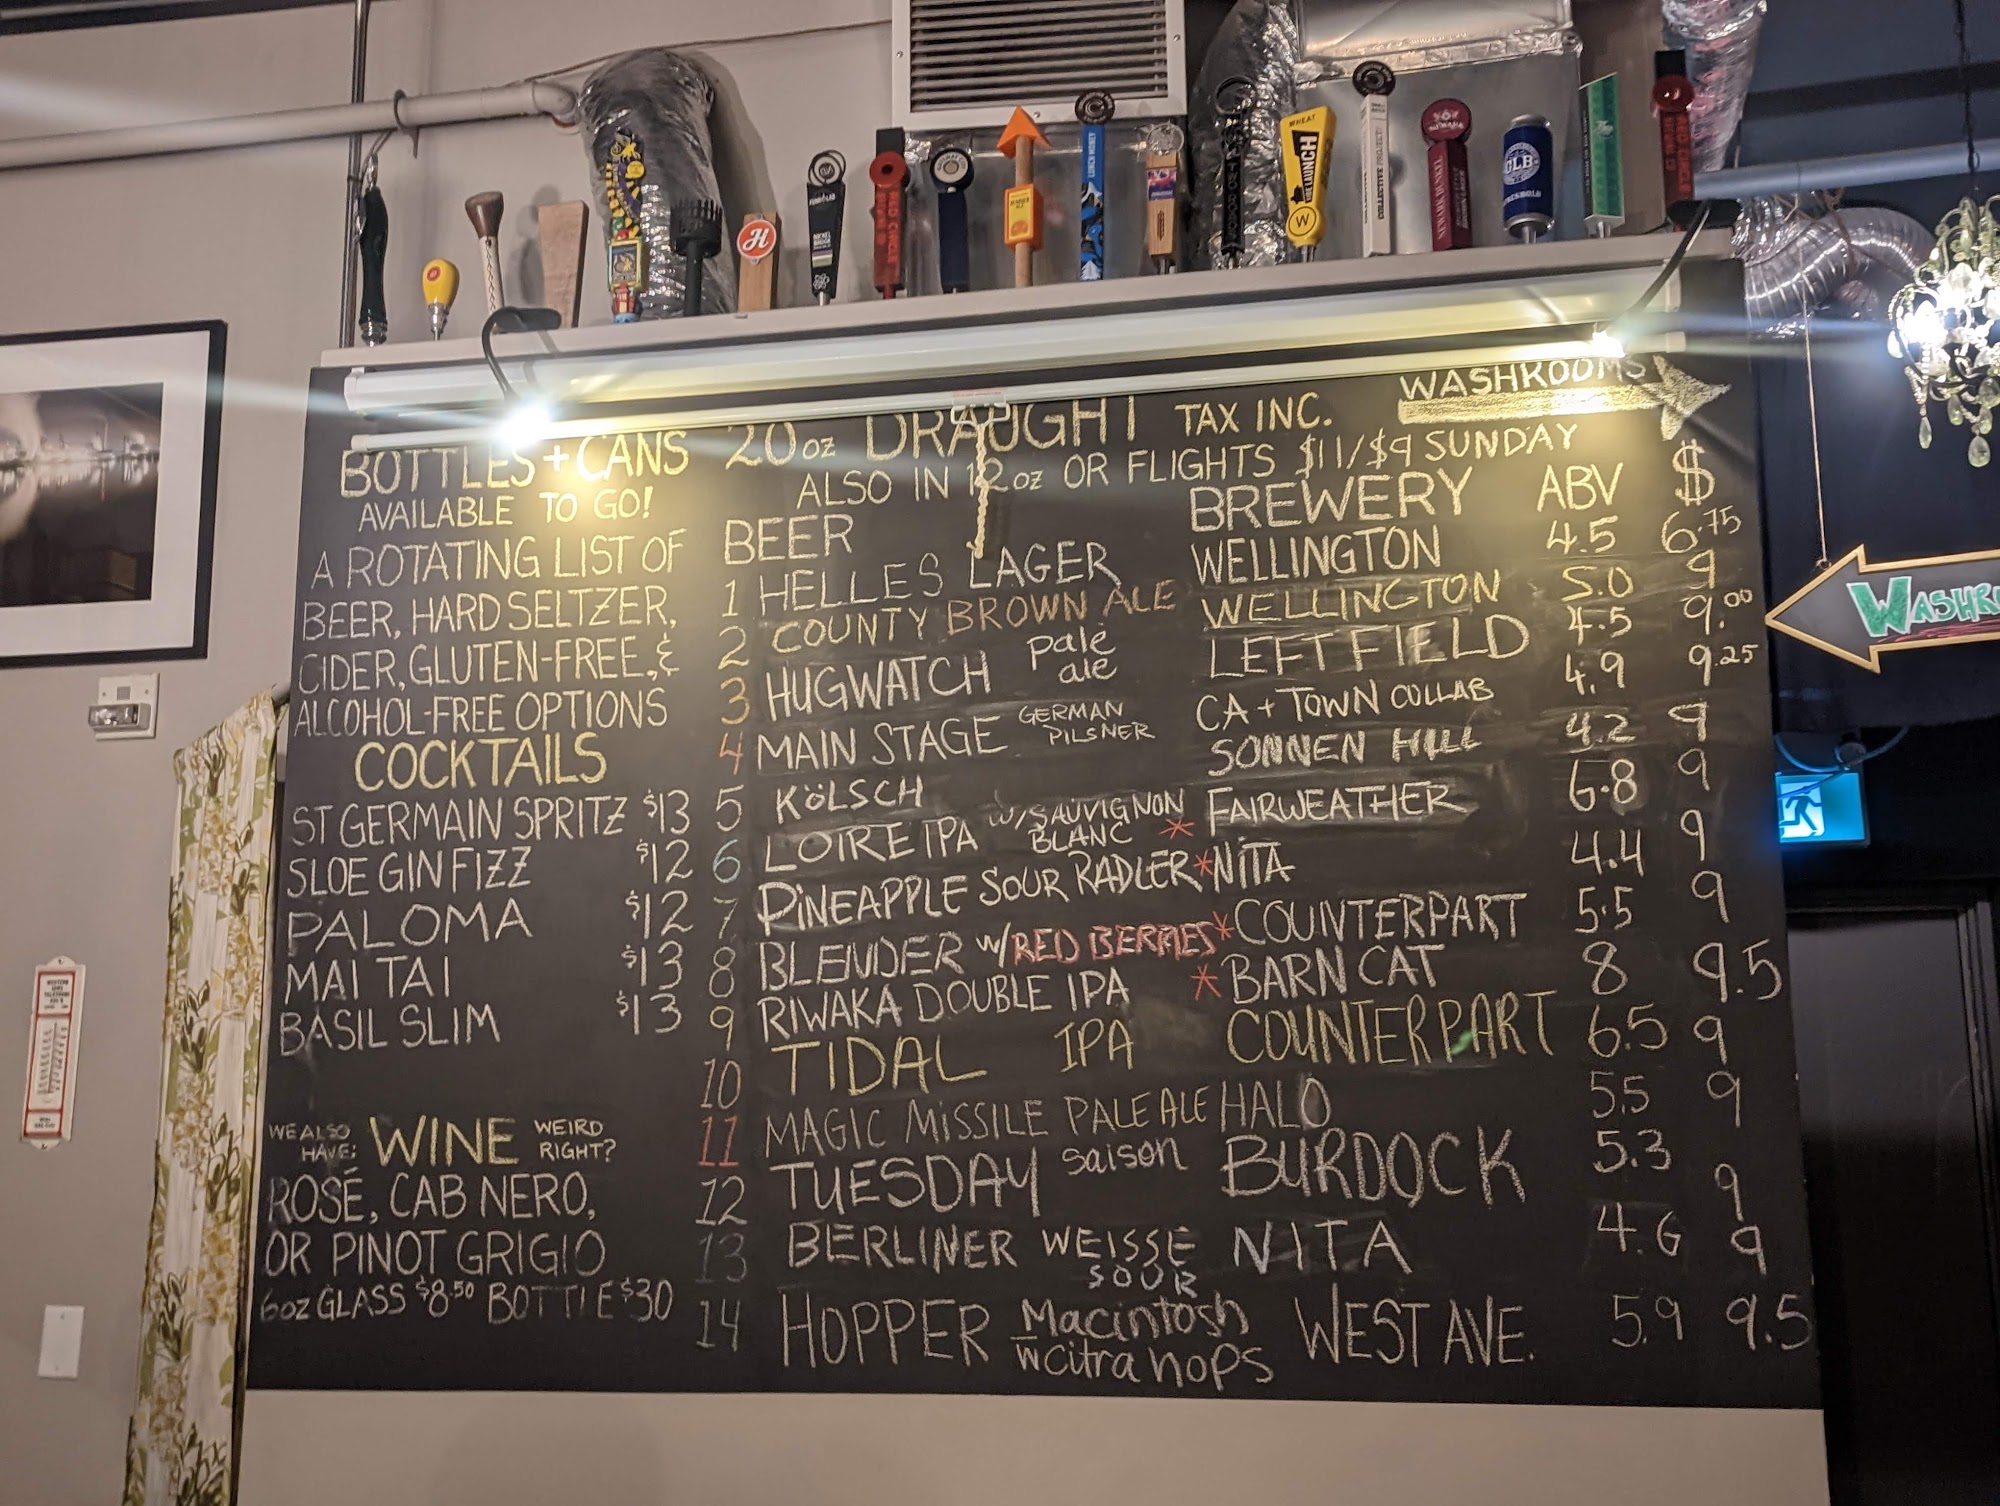 WASHROOMS
20oz DRAUGHT TAX INC.
ALSO IN 12oz OR FLIGHTS $11/$9 SUNDAY
BOTTLES + CANS
AVAILABLE TO GO!
A ROTATING LIST OF
BEER, HARD SELTZER,
CIDER, GLUTEN-FREE, &
ALCOHOL-FREE OPTIONS
COCKTAILS
ST GERMAIN SPRITZ $13
SLOE GIN FIZZ $12
PALOMA $12
MAI TAI $13
BASIL SLIM $13
WE ALSO HAVE: WINE WEIRD RIGHT?
ROSÉ, CAB NERO,
OR PINOT GRIGIO
6oz GLASS $8.50 BOTTLE $30
BEER BREWERY ABV $
1 HELLES LAGER WELLINGTON 4.5 6.75
2 COUNTY BROWN ALE WELLINGTON 5.0 9
3 HUGWATCH pale ale LEFT FIELD 4.5 9.00
4 MAIN STAGE GERMAN PILSNER CA + TOWN COLLAB 4.9 9.25
5 KÖLSCH SONNEN HILL 4.2 9
6 LOIRE IPA W/SAUVIGNON BLANC * FAIRWEATHER 6.8 9
7 PINEAPPLE SOUR RADLER * NITA 4.4 9
8 BLENDER w/ RED BERRIES * COUNTERPART 5.5 9
9 RIWAKA DOUBLE IPA * BARNCAT 8 9.5
10 TIDAL IPA COUNTERPART 6.5 9
11 MAGIC MISSILE PALE ALE HALO 5.5 9
12 TUESDAY saison BURDOCK 5.3 9
13 BERLINER WEISSE SOUR NITA 4.6 9
14 HOPPER Macintosh w citra hops WEST AVE. 5.9 9.5
WHEAT
LUNCH MONEY
COLLECTIVE PROJECT
GLB
H
W
WASHR